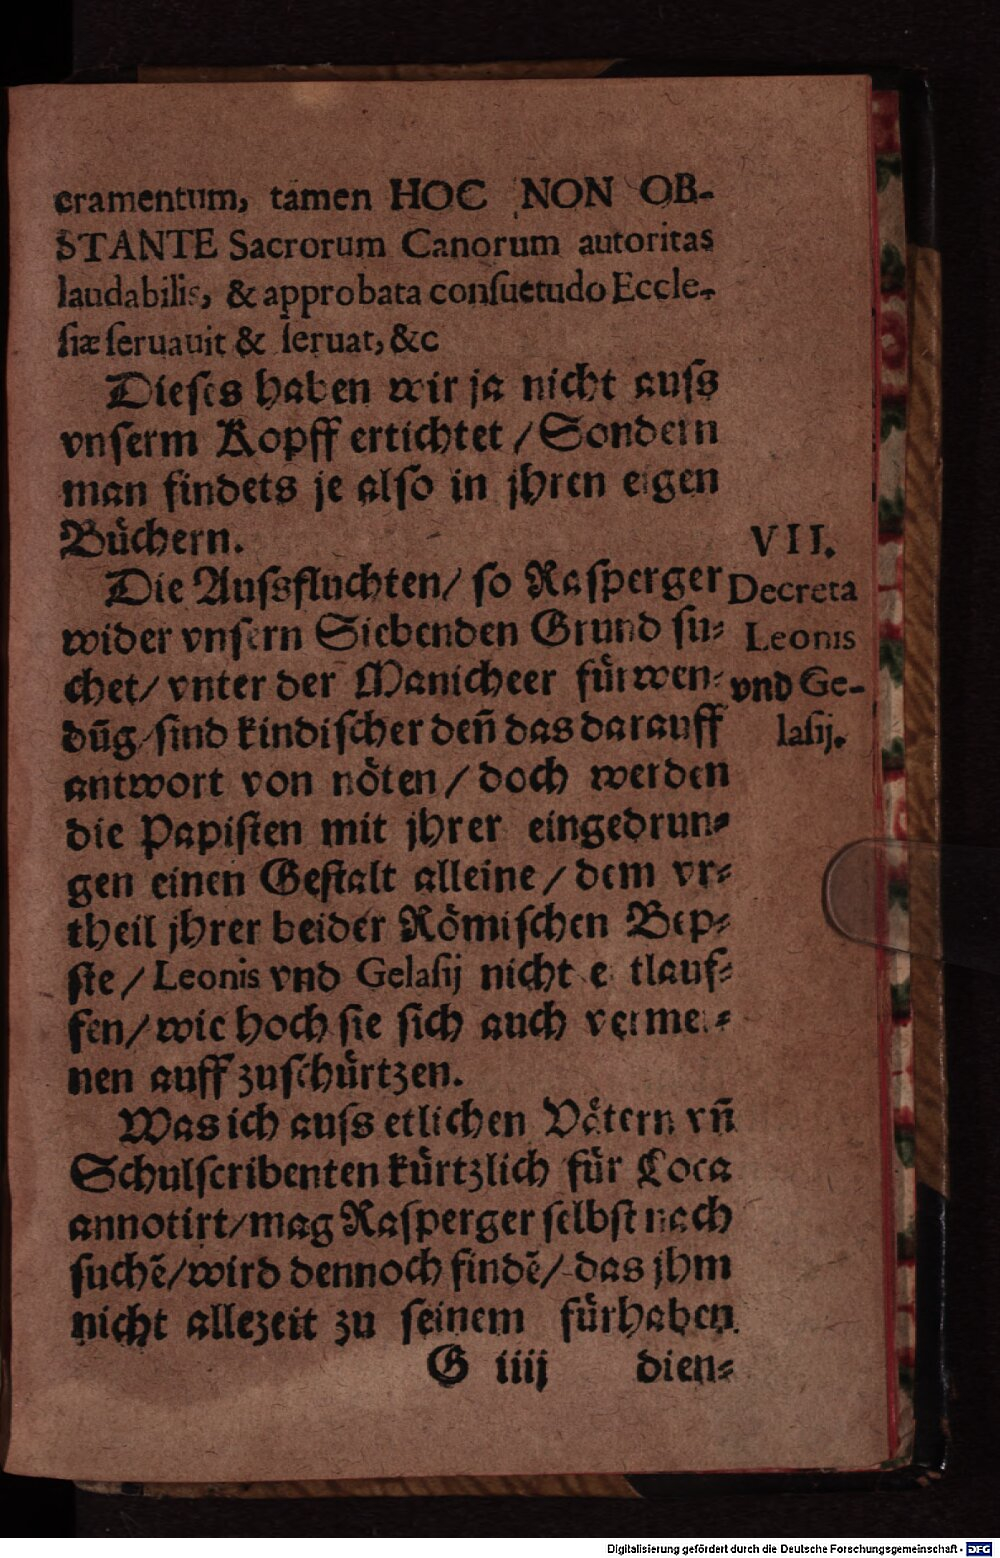 cramentum, tamen HOC NON OB-
STANTE Sacrorum Canorum autoritas
laudabilis, & approbata conſuetudo Eccle-
ſiæ ſeruauit & ſeruat, &c
Dieſes haben wir ja nicht auſs
vnſerm Kopff ertichtet / Sondern
man findets je alſo in jhren eigen
Büchern.
Die Auſsfluchten / ſo Raſperger
wider vnſern Siebenden Grund ſu-
chet / vnter der Manicheer fürwen-
dūg / ſind kindiſcher deñ das darauff
antwort von nöten / doch werden
die Papiſten mit jhrer eingedrun-
gen einen Geſtalt alleine / dem vr-
theil jhrer beider Römiſchen Bep-
ſte / Leonis vnd Gelaſij nicht entlauf-
fen / wie hoch ſie ſich auch vermei-
nen auff zuſchürtzen.
Was ich auſs etlichen Vätern vñ
Schulſcribenten kürtzlich für Loca
annotirt / mag Raſperger ſelbſt nach
ſuchē / wird dennoch findē / das jhm
nicht allezeit zu ſeinem fürhaben
G iiij dien-
VII.
Decreta
Leonis
vnd Ge-
laſij.
Digitalisierung gefördert durch die Deutsche Forschungsgemeinschaft - DFG